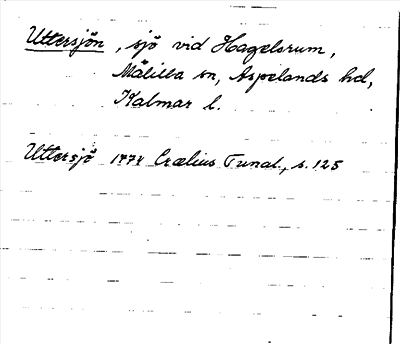 Uttersjön, sjö vid Hagelsrum,
Målilla sn, Aspelands hd,
Kalmar l.
Uttersjö 1774 Crælius Tunal., s. 125